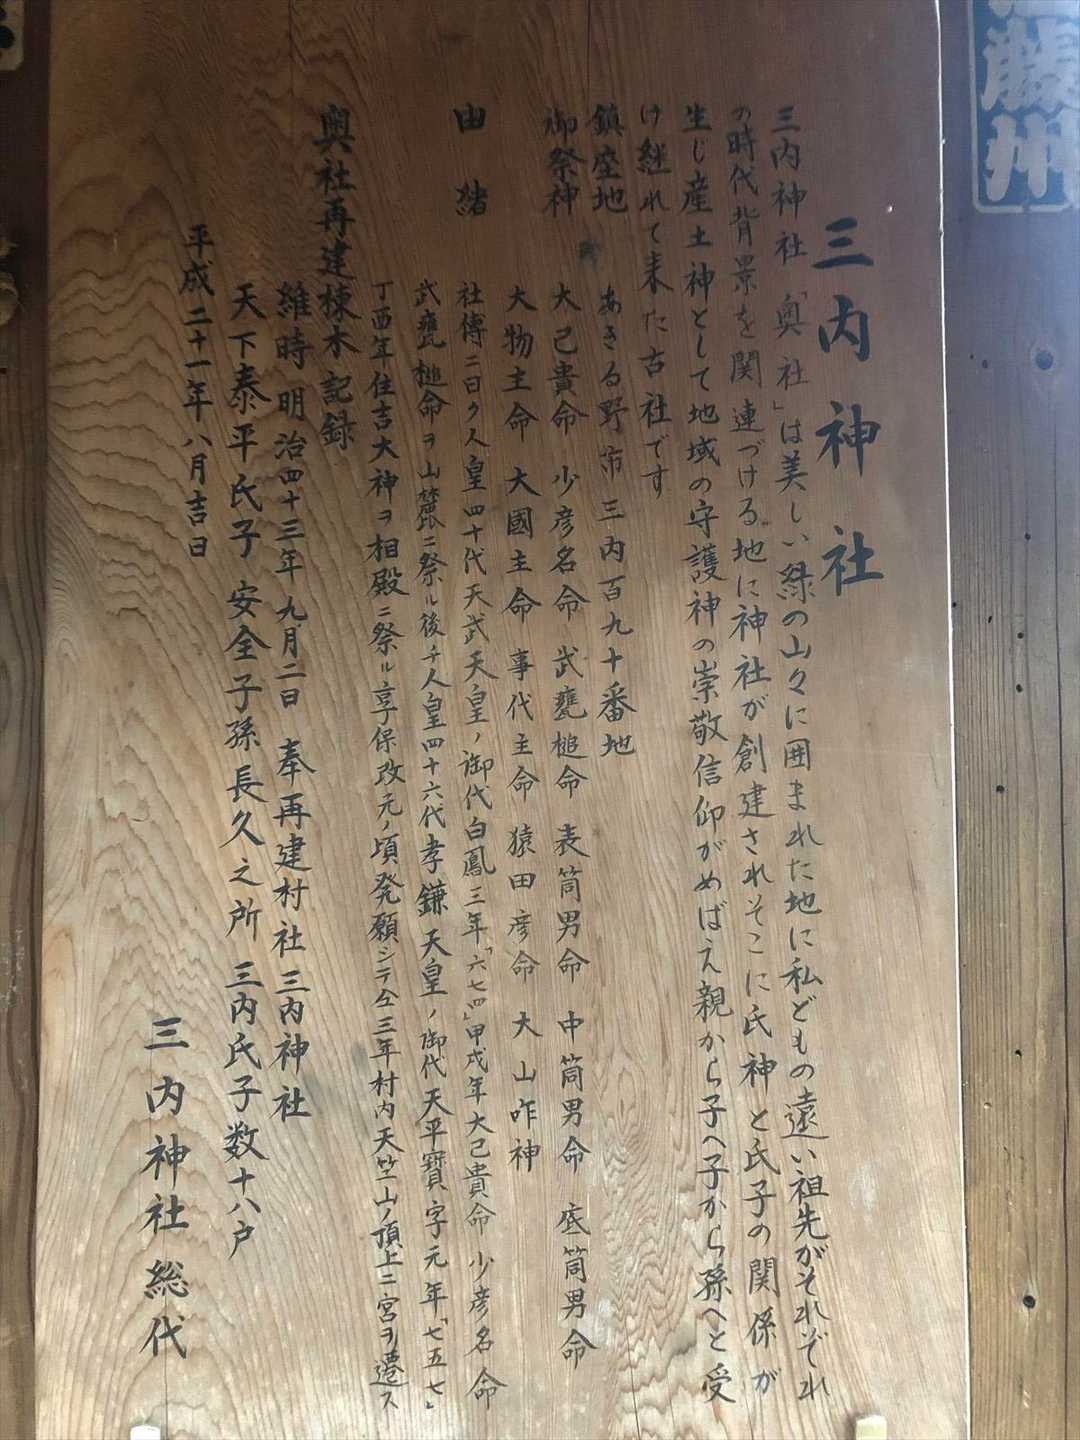 藤州
三内神社
三内神社「奥社」は美しい緑の山々に囲まれた地に私どもの遠い祖先がそれぞれ
の時代背景を関連づける地に神社が創建されそこに氏神と氏子の関係が
生じ産土神として地域の守護神の崇敬信仰がめばえ親から子へ子から孫へと受
け継れて来た古社です
鎮座地 あきる野市三内百九十番地
御祭神 大己貴命 少彦名命 武甕槌命 表筒男命 中筒男命 底筒男命
大物主命 大國主命 事代主命 猿田彦命 大山咋神
由緒 社傳ニ曰ク人皇四十代天武天皇ノ御代白鳳三年「六七四」甲戌年大己貴命少彦名命
武甕槌命ヲ山麓ニ祭ル後チ人皇四十六代孝鎌天皇ノ御代天平寶字元年「七五七」
丁酉年住吉大神ヲ相殿ニ祭ル享保改元ノ頃発願シテ仝三年村内天竺山ノ頂上ニ宮ヲ遷ス
奥社再建棟木記録
維時明治四十三年九月二日 奉再建村社三内神社
天下泰平氏子安全子孫長久之所 三内氏子数十八戸
平成二十一年八月吉日
三内神社総代